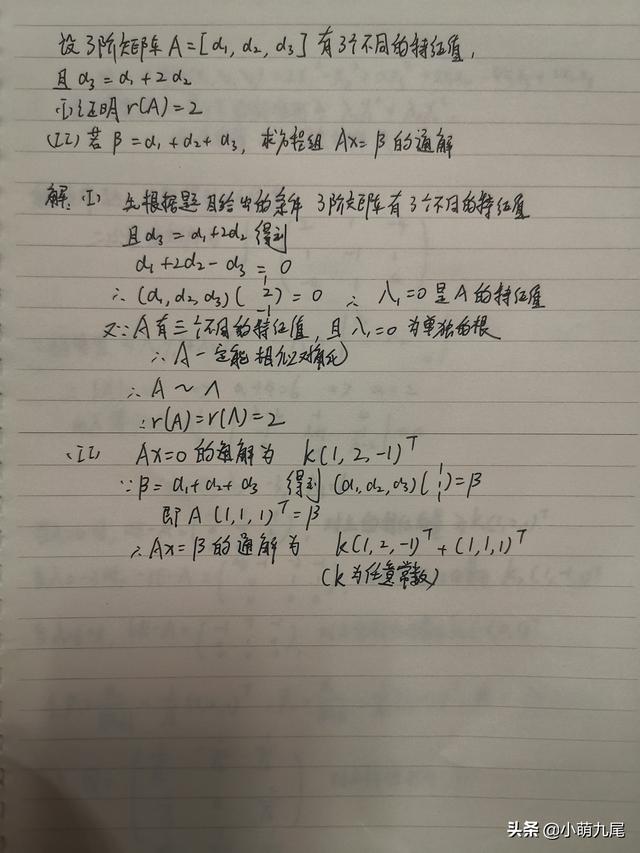 设3阶矩阵A=[α₁, α₂, α₃]有3个不同的特征值,
且α₃=α₁+2α₂
(I)证明r(A)=2
(II)若β=α₁+α₂+α₃, 求方程组 Ax=β的通解
解(I) 先根据题目给出的条件 3阶矩阵有3个不同的特征值
且α₃=α₁+2α₂得到
α₁+2α₂-α₃=0
∴(α₁,α₂,α₃)(1 2 -1)=0 ∴ λ₁=0是A的特征值
又∵A有三个不同的特征值, 且λ₁=0为单独的根
∴A一定能相似对角化
∴A~Λ
∴r(A)=r(Λ)=2
(II) Ax=0的通解为 k(1,2,-1)ᵀ
∵β=α₁+α₂+α₃ 得到(α₁,α₂,α₃)(1 1 1)=β
即A(1,1,1)ᵀ=β
∴Ax=β的通解为 k(1,2,-1)ᵀ+(1,1,1)ᵀ
(k为任意常数)
头条 @小萌九尾